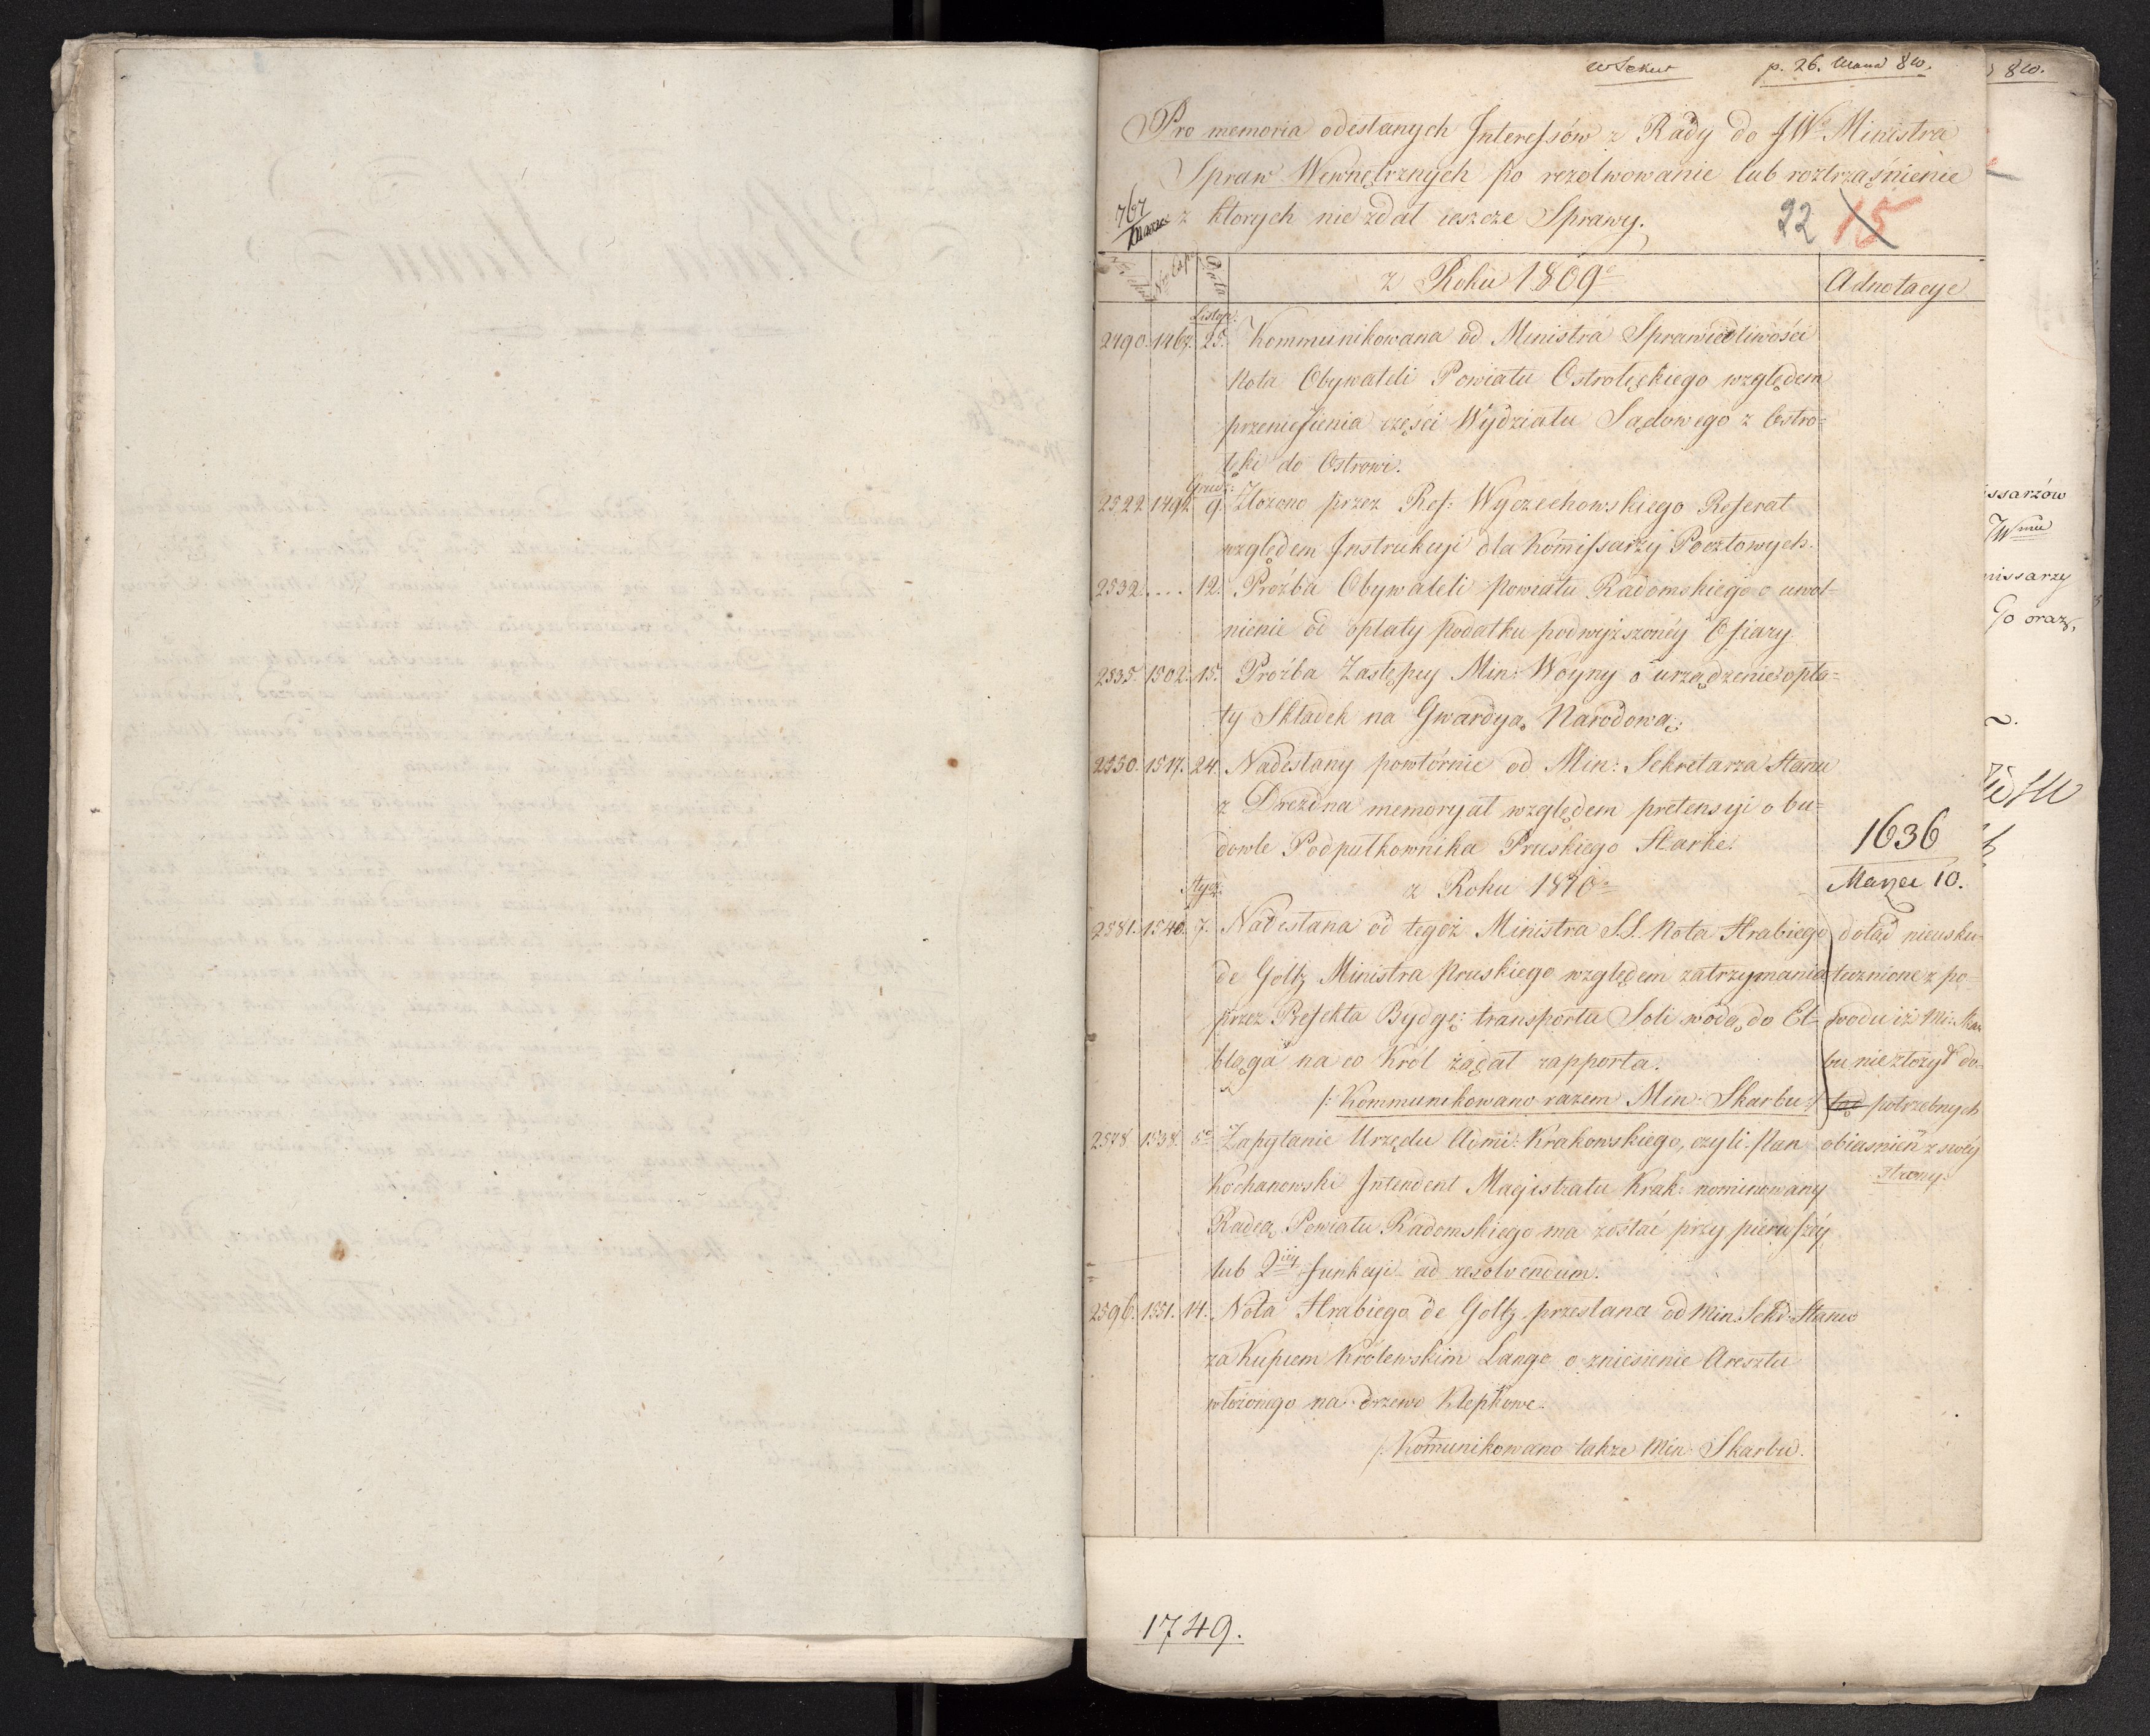 p. 26. Marca 810.
Pro memoria odesłanych Interessów z Rady do JW. Ministra
Spraw Wewnętrznych po rezolwowanie lub roztrząśnienie
z ktorych nie zdał ieszcze Sprawy.
767
Marca
22 15
Data
z Roku 1809
Adnotacye
Listop:
2490. 1467. 25. Kommunikowana od Ministra Sprawiedliwości
Nota Obywateli Powiatu Ostrołęckiego względem
przeniesienia części Wydziału Sądowego z Ostro=
łęki do Ostrowi.
Grudz:
2522 1492 9. Złożono przez Ref: Wyczechowskiego Referat
względem Instrukcyi dla Kommissarzy Pocztowych.
2532. .... 12. Prożba Obywateli powiatu Radomskiego o uwol=
nienie od opłaty podatku podwyższonéy Ofiary.
2535. 1502. 15. Prożba Zastępcy Min: Woyny o urządzenie opła=
ty Składek na Gwardyą Narodową.
2550. 1517. 24. Nadesłany powtórnie od Min: Sekretarza Stanu
z Drezdna memoryał względem pretensyi o bu=
dowle Podpułkownika Pruskiego Starke.
1636
Marzec 10.
Stycz:
z Roku 1810
2581. 1540. 7. Nadesłana od tegoż Ministra S.S. Nota Hrabiego
de Goltz Ministra Pruskiego względem zatrzymania
przez Prefekta Bydgo: transportu Soli wodą do El=
bląga na co Król żądał rapportu.
/: Kommunikowano razem Min: Skarbu :/
dotąd nieusku=
tecznione z po=
wodu iż Mi: Skar
bu nie złożył do=
tąd potrzebnych
obiasnień z swéy
strony.
2578. 1538. 5 Zapytanie Urzędu Admi: Krakowskiego, czyli Pan
Kochanowski Intendent Magistratu Krak: nominowany
Radcą Powiatu Radomskiego ma zostać przy pierwszéy
lub 2iéy funkcyi ad resolvendum.
2596. 1551. 14. Nota Hrabiego de Goltz przesłana od Min. Sekr: Stanu
za Kupcem Królewskim Lange o zniesienie Aresztu
włożonego na drzewo Klepkowe.
/: Kommunikowano także Min: Skarbu.
1749.
810.
issarzów
JWmu
missarzy
Go oraz,